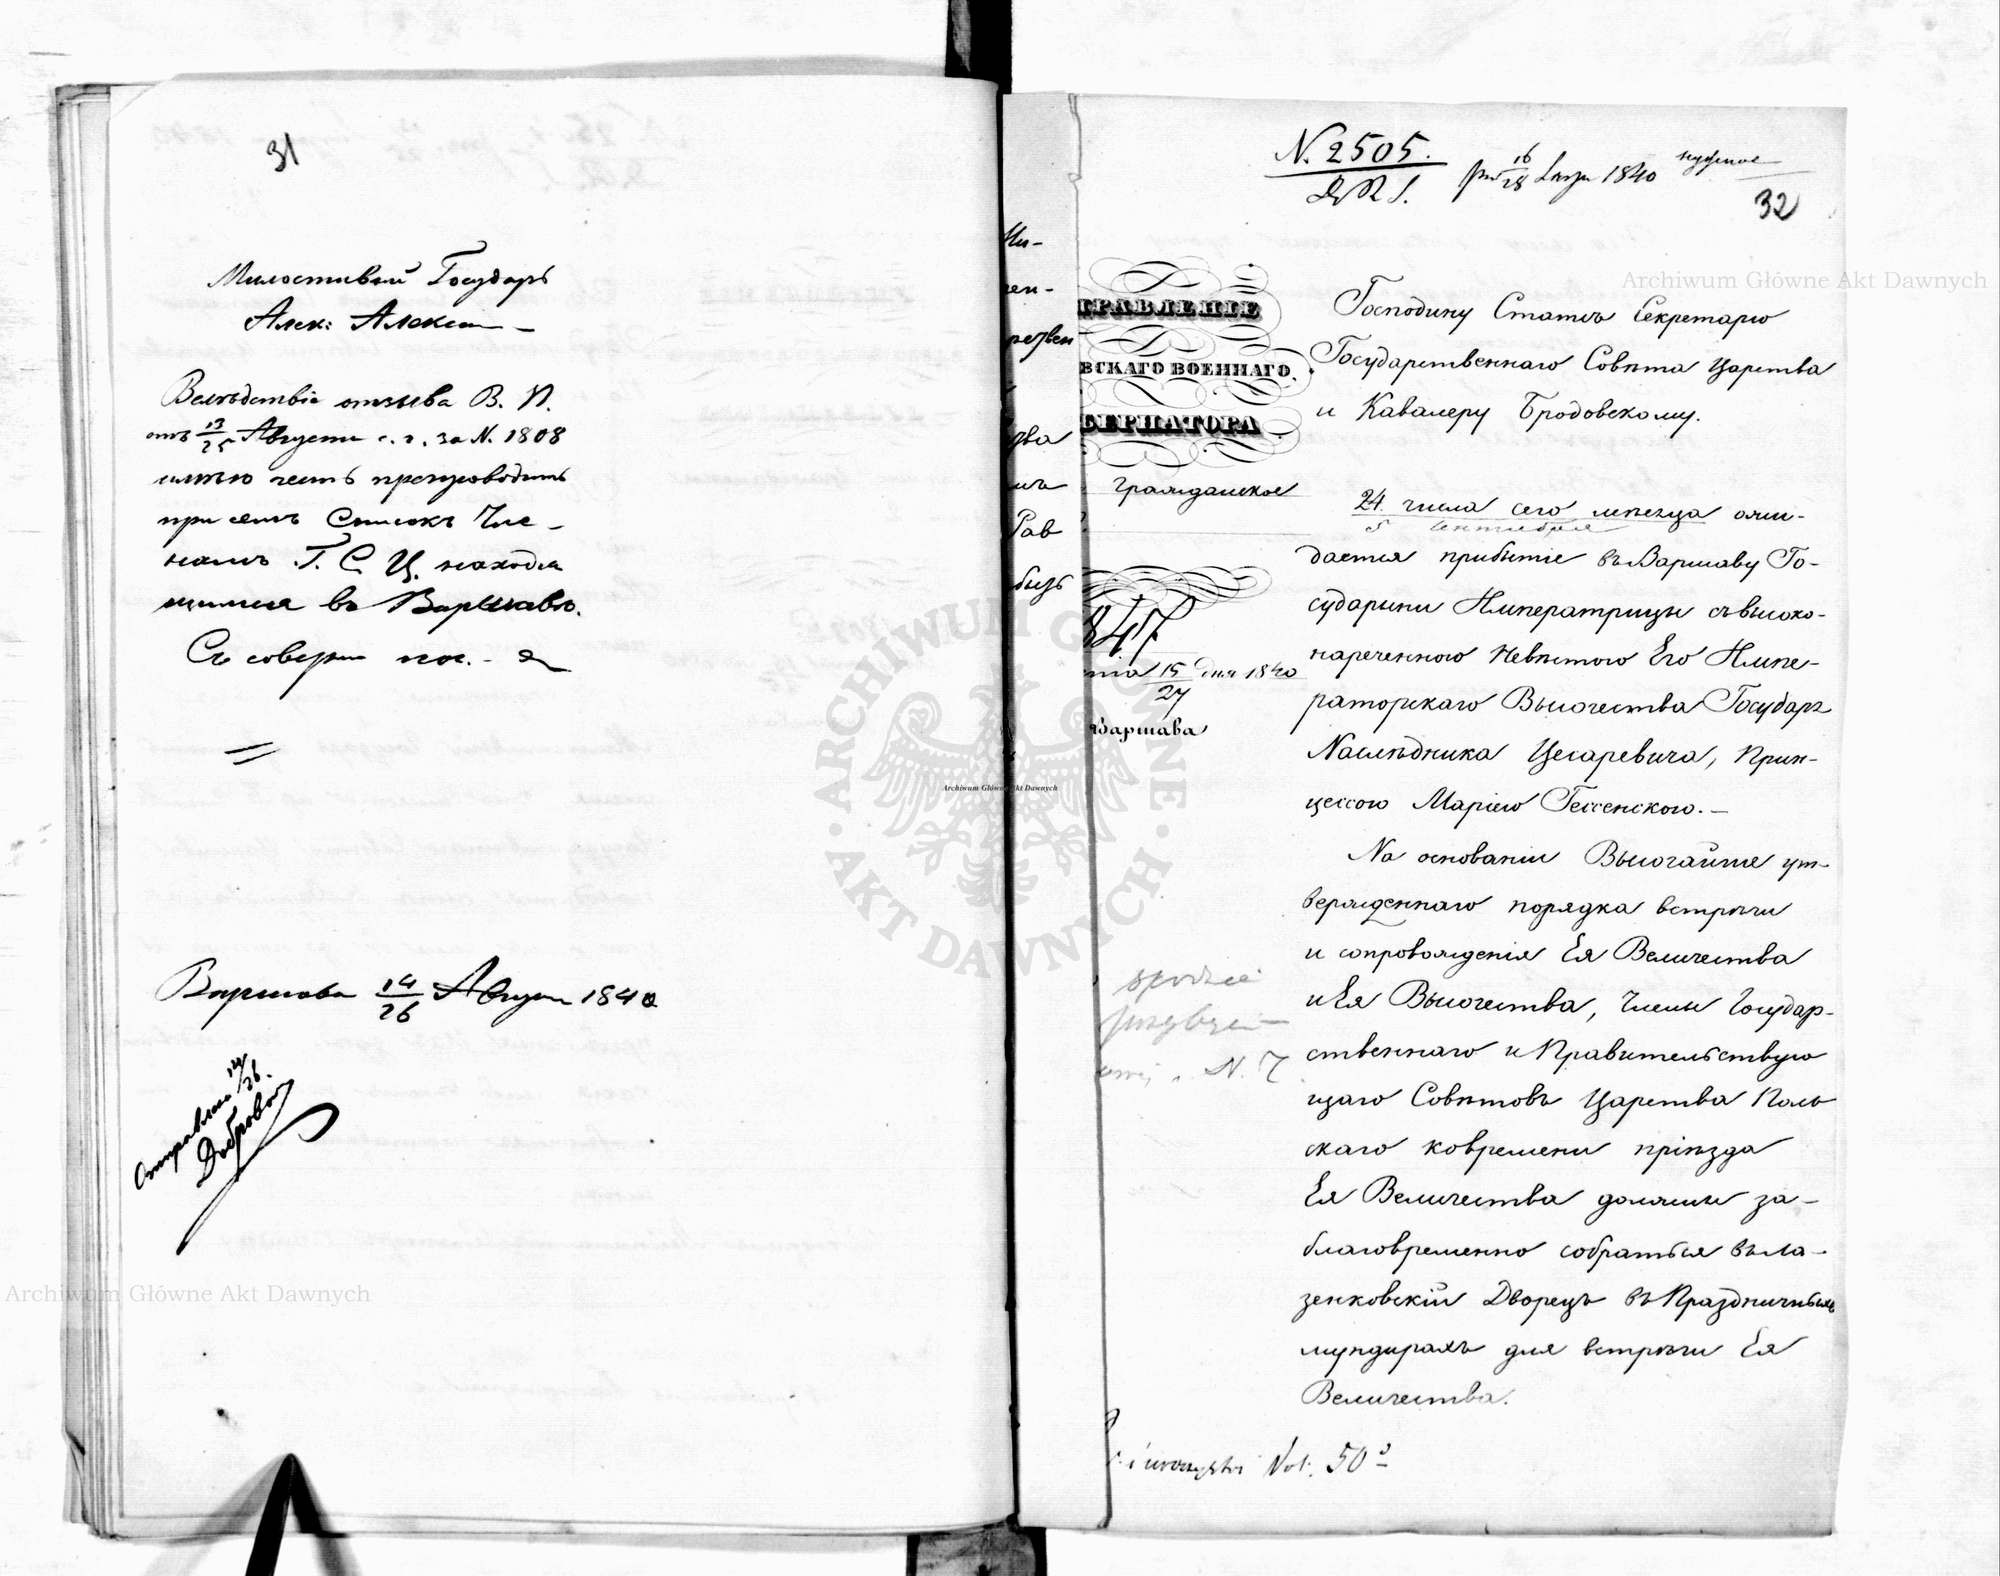 31
Милостивый Государь
Алек: Алекса
Вслѣдствіе отзыва В. П.
отъ 13/25 Августа с. г. за N. 1808
имѣю честь препроводить
при семъ Списокъ Чле-
намъ Г. С. Ц. находя
щимся въ Варшавѣ.
Съ соверш поч.
Варшава 14/26 Август 1840
Отправлено 14/26.
N. 2505.
16/28 1840
32
ПРАВЛЕНІЕ
ВСКАГО ВОЕННАГО
БЕРНАТОРА
Гражданское
847
15/27 дня 1840
Варшава
Господину Статсъ Секретарю
Государственнаго Совѣта Царства
и Кавалеру Бродовскому.
24 числа сего мѣсяца ожи-
5 Сентября
дается прибытіе въ Варшаву Го-
сударыни Императрицы съ высоко-
нареченною Невѣстою Его Импе-
раторскаго Высочества Государя
Наслѣдника Цесаревича, Прин-
цессою Маріею Гессенскою.—
На основаніи Высочайше ут-
вержденнаго порядка встрѣчи
и сопровожденія Ея Величества
и Ея Высочества, Члены Государ-
ственнаго и Правительствую
щаго Совѣтовъ Царства Поль
скаго ко времени пріѣзда
Ея Величества должны за-
благовременно собраться въ Ла-
зенковскій Дворецъ въ Праздничныхъ
мундирахъ для встрѣчи Ея
Величества.
N. 7
Vol. 50
Archiwum Główne Akt Dawnych
Archiwum Główne Akt Dawnych
Archiwum Główne Akt Dawnych
ARCHIWUM GŁÓWNE
AKT DAWNYCH